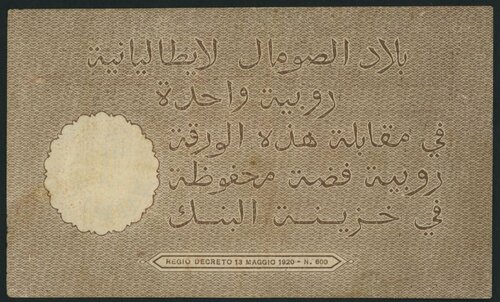 بلاد الصومال لايطاليانية
روبية واحدة
في مقابلة هذه الورقة
روبية فضة محفوظة
في خزينة البنك
REGIO DECRETO 13 MAGGIO 1920 - N. 600